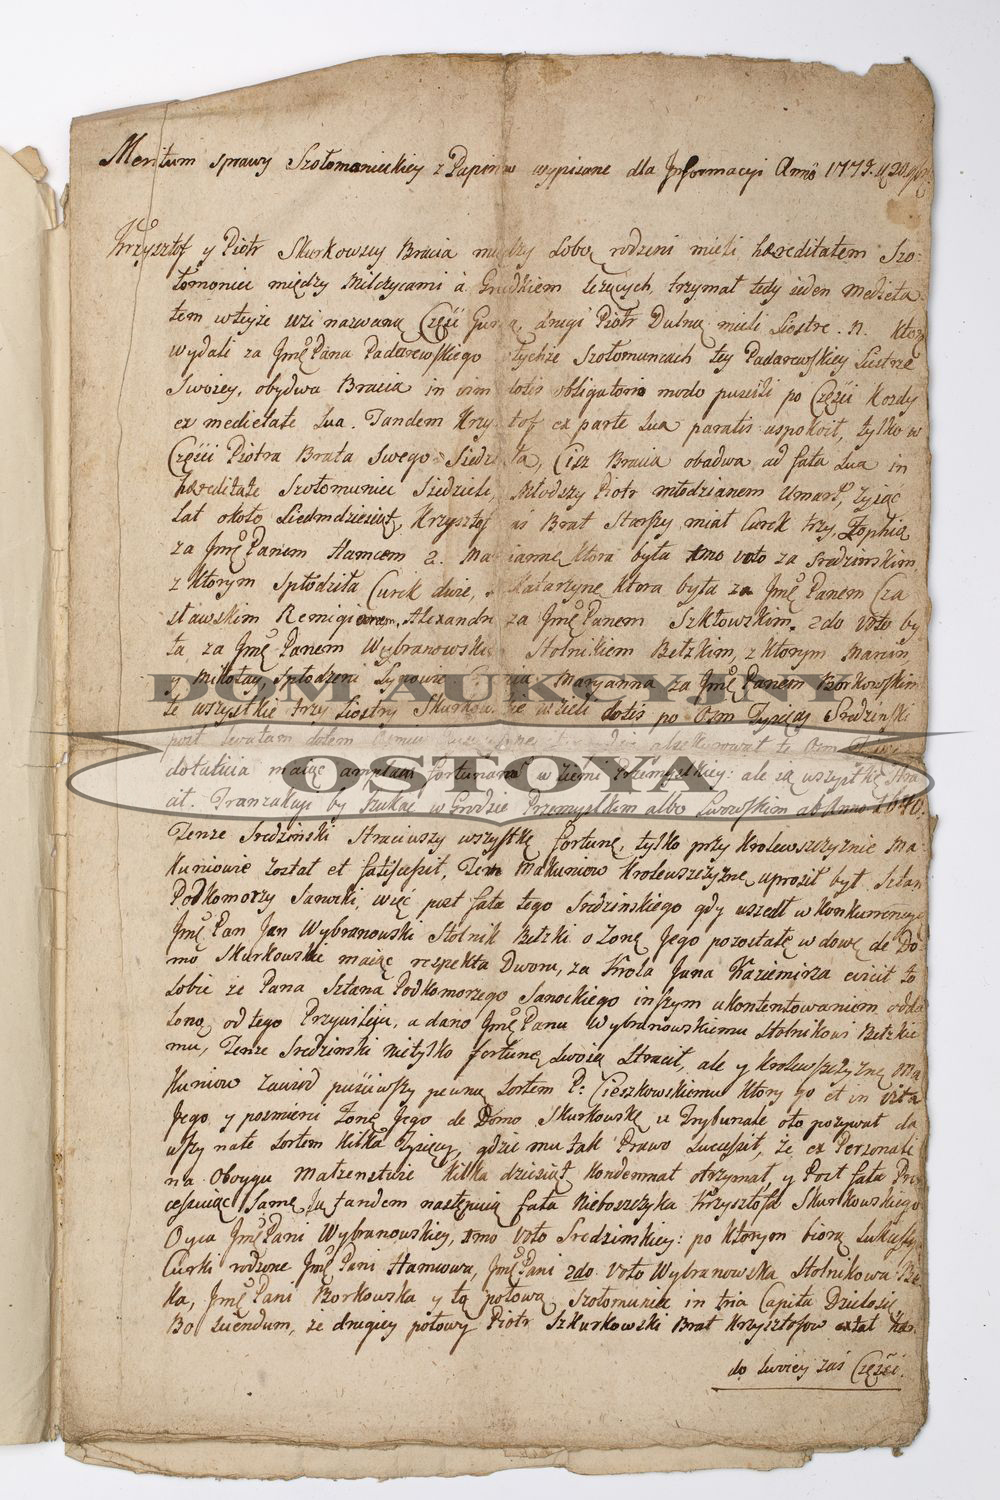 Meritum sprawy Szołomanieckiey z Papirow wypisane dla Jnformacyi Anno 1779. d 20
Krzysztof y Piotr Skurkowscy Bracia między Sobą rodzeni mieli hæreditatem Szo-
łomonici między Milczycami à Grudkiem leżących, trzymał tedy ieden medieta
tem wteyże wsi nazwaną Częsć Gurną, drugi Piotr Dulną mieli Siostrę. N. ktorą
wydali za Jmę Pana Padarewskiego wtychże Szołomuncach tey Padarewskiey Siestrze
Swoiey, obydwa Bracia in vim dotis obligatorio modo puscili po Częsci Kozdy
ex medietate Sua. Tandem Krzysztof ex parte Sua paratis uspokoił, tylko w
Częsci Piotra Brata Swego Siedziała, Ciż Bracia obadwa ad fata Sua in
hæreditate Szołomunici Siedzieli, Młodszy Piotr młodzianem Umarł, żyiąc
Lat około Siedmdziesiąt, Krzysztof zaś Brat Starszy miał Curek trzy, Zophią
za Jmę Panem Hamcem 2. Maryannę ktora była 1mo voto za Sredzinskim,
z ktorym Spłodziła Curek dwie, Katarzynę ktora była za Jmę Panem Cza
sławskim Remigierem, Alexandrę za Jmę Panem Szkłowskim. 2do Voto by
ła za Jmę Panem Wybranowskim Stolnikiem Bełzkim, z ktorym Marcin
y Mikołay Spłodzeni Synowie Maryanna za Jmę Panem Borkowskim
te wszystkie trzy Siostry Skurkowskie wzieli dotis po Osm Tysięcy Sredzinski
post levatam dotem te Osm
dotalicia maiąc amplam fortunam w Ziemi Przemyskiey: ale ią wszystkę Stra
cił. Tranzakcyi by szukać w Grodzie Przemyskim albo Lwowskim ab Anno 1640.
Tenże Sredzinski Straciwszy wszystkę fortunę, tylko przy Krolewszczyznie Ma-
kuniowie został et fatiscesit, Tem Makuniow Krolewszczyznę uprosił był Sztan
Podkomorzy Sanocki, więc post fata tego Sredzinskiego gdy uszedł w konkurencyą
Jmę Pan Jan Wybranowski Stolnik Bełzki o Zonę Jego pozostałę wdowę de Do-
mo Skurkowski maiąc respekta Dworu, za Krola Jana Kazimierza ewicit to
Sobie że Pana Sztana Podkomorzego Sanockiego inszym ukontentowaniem odda
lono od tego Przywileju, a dano Jmę Panu Wybranowskiemu Stolnikowi Bełzkie
mu, Tenże Sredzinski nietylko fortunę Swoią Stracił, ale y Krolewszczyznę Ma
kuniow zawiod pusciwszy pewną Sortem P: Cieszkowskiemu ktory go et in vita
Jego y posmierci Zonę Jego de Domo Skurkowskę u Trybunale oto pozywał da
wszy nate Sortem kilka Tysięcy, gdzie mu tak Prawo Sucessit, że ex Personali
na Oboygu Małżenstwie kilka dziesiąt kondemnat otrzymał, y Post fata Pro
cessuiąc Samę Ją tandem następuią fata Nieboszczyka Krzysztofa Skurkowskiego
Oyca Jmę Pani Wybranowskiey, 1mo Voto Sredzinskiey: po ktorym biorą Sukcessyą
Curki rodzone Jmę Pani Hamcowa, Jmę Pani 2do Voto Wybranowska Stolnikowa Beł-
ka, Jmę Pani Borkowska y tę połową Szołomuniec in tria Capita Dzielosię
Bo Sciendum, że drugiey połowy Piotr Szkurkowski Brat Krzysztofow
do Swoiey zaś Częsci.
DOM AUKCYJNY
OSTOYA